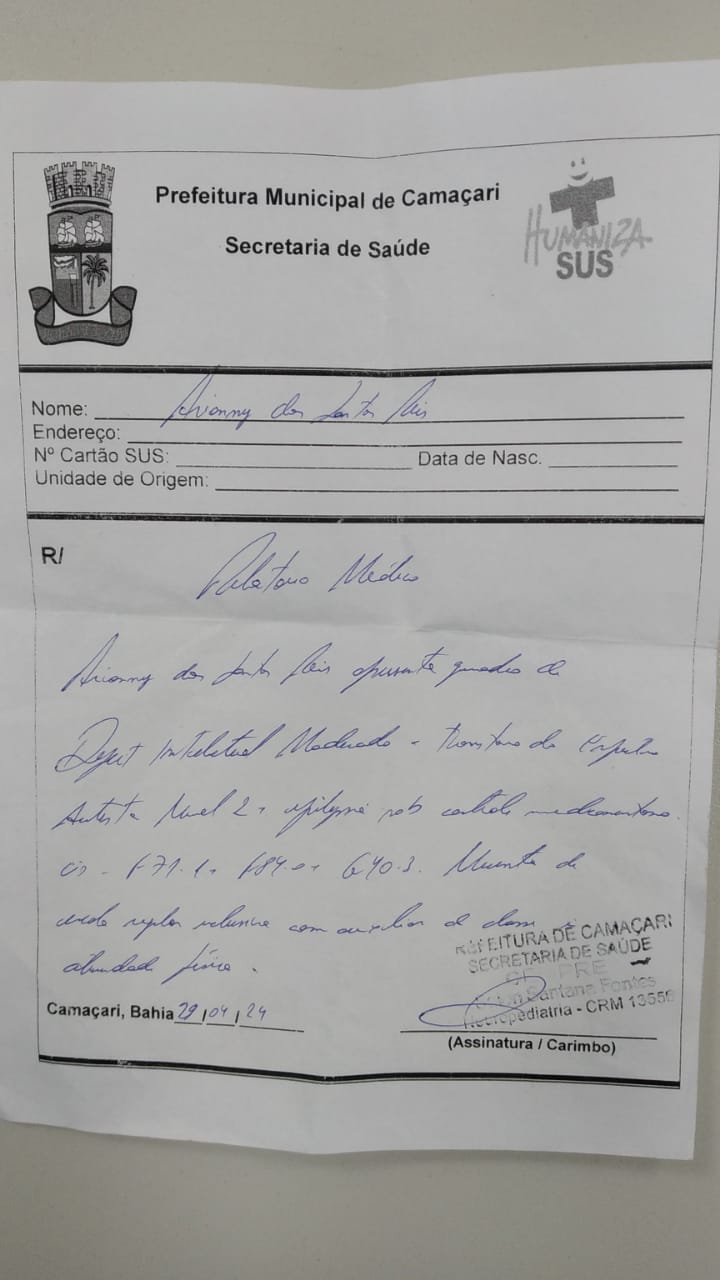 Prefeitura Municipal de Camaçari
Secretaria de Saúde
HUMANIZA
SUS
Nome: Arianny dos Santos Reis
Endereço:
Nº Cartão SUS: Data de Nasc.
Unidade de Origem:
R/
Relatório Médico
Arianny dos Santos Reis apresenta quadro de
Deficit Intelectual Moderado - Transtorno do Espectro
Autista Nível 2 + epilepsia sob controle medicamentoso.
CID - F71.1 + F84.0 + G40.3. Necessita de
escola regular inclusiva com auxiliar de classe e
atividade física.
PREFEITURA DE CAMAÇARI
SECRETARIA DE SAÚDE
Santana Fontes
Neuropediatria - CRM 13556
Camaçari, Bahia 29/04/24
(Assinatura / Carimbo)